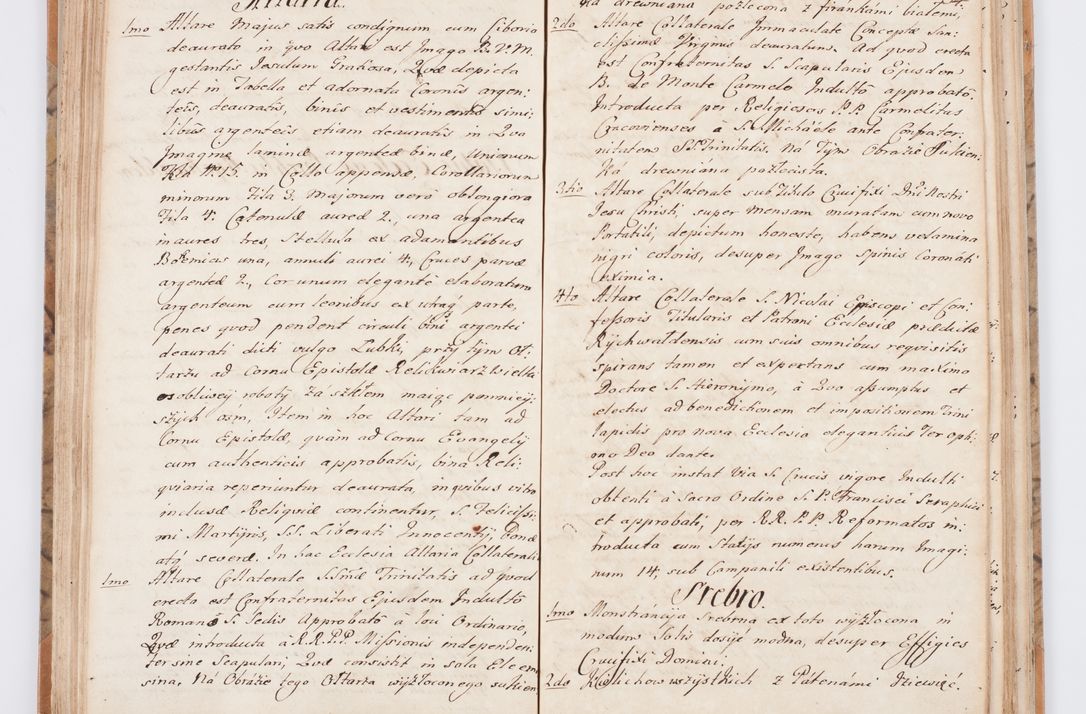 Altaria.
1mo Altare Majus satis condignum cum Ciborio
deaurato in qvo Altari est Imago B. V. M.
gestantis Jesulum Gratiosa, Qvæ depicta
est in Tabella et adornata Coronis argen:
teis, deauratis, binis et vestimentis simi:
libus argenteis etiam deauratis in Qva
Imagine laminæ argenteæ binæ, Unionum
fila No 15. in Collo appensæ, Corollariorum
minorum fila 3. Majorum verò oblongiora
fila 4. Catenulæ aureæ 2., una argentea
inaures tres, Stellula ex adamantibus
Boemicis una, annuli aurei 4., Cruces parvæ
argenteæ 2., Cor unum eleganté elaboratum
argenteum cum leonibus ex utraq parte,
penes qvod pendent circuli bini argentei
deaurati dicti vulgo Lubki, przy tym Oł:
tarzu ad Cornu Epistolæ Relikwiarz wielki
osobliwey roboty zá szkłem maiąc pomniey:
szych osm, Item in hoc Altari tam ad
Cornu Epistolæ, qvàm ad Cornu Evangelij
cum authenticis approbatis, bina Reli:
qviaria reperiuntur deaurata, in qvibus vitro
inclusæ Reliqviæ continentur, S. Felicissi:
mi Martijris, SS. Liberati Innocentij, Dona
atq severæ. In hac Ecclesia Altaria Collateralia
1mo Altare Collaterale SSmæ Trinitatis ad qvod
erecta est Confraternitas Ejusdem Indultô
Romanô S. Sedis Approbatô à loci Ordinario,
Qvæ introducta à R.R.P.P. Missionis independen:
ter sine Scapulari, Qvæ consistit in sola Eleemo
sina. Ná Obrázie tego Ołtarza wyzłoconego sukien
ká drewniana pozłocona z firankámi białemi,
2do Altare Collaterale Immaculatæ Conceptæ San:
ctissimæ Virginis deauratum. Ad qvod erecta
est Confraternitas S. Scapularis Ejusdem
B. de Monte Carmelo Indultô approbatô.
Introducta per Religiosos P.P. Carmelitas
Cracovienses à S. Michaele ante Confrater:
nitatem SS. Trinitatis. Ná Tym Obrázie Sukien:
ká drewniána pozłocista.
3tio Altare Collaterale sub Titulo Crucifixi Dni Nostri
Jesu Christi, super mensam muratam cum novo
Portatili, depictum honeste, habens velamina
nigri coloris, desuper Imago Spinis Coronati
Eximia.
4to Altare Collaterale S. Nicolai Episcopi et Con:
fessoris Titularis et Patroni Ecclesiæ prædictæ
Rychwaldensis cum suis omnibus reqvisitis
spirans tamen et expectans cum maximo
Doctore S. Hieronymo, à Qvo assumptus et
electus ad benedictionem et impositionem Primi
lapidis pro nova Ecclesia elegantiùs
Deo dante.
Post hoc instat Via S. Crucis vigore Indulti
obtenti à Sacro Ordine S. P. Francisci Seraphici
et approbati, per R.R.P.P. Reformatos in:
troducta cum Statijs numerus harum Imagi:
num 14, sub Campanili existentibus.
Srebro.
1mo Monstráncyja srebrna ex toto wyzłocona in
modum Solis dosyć modna, desuper Effigies
Crucifixi Domini.
2do Kielichow wszystkich z Pátenámi dziewięć.